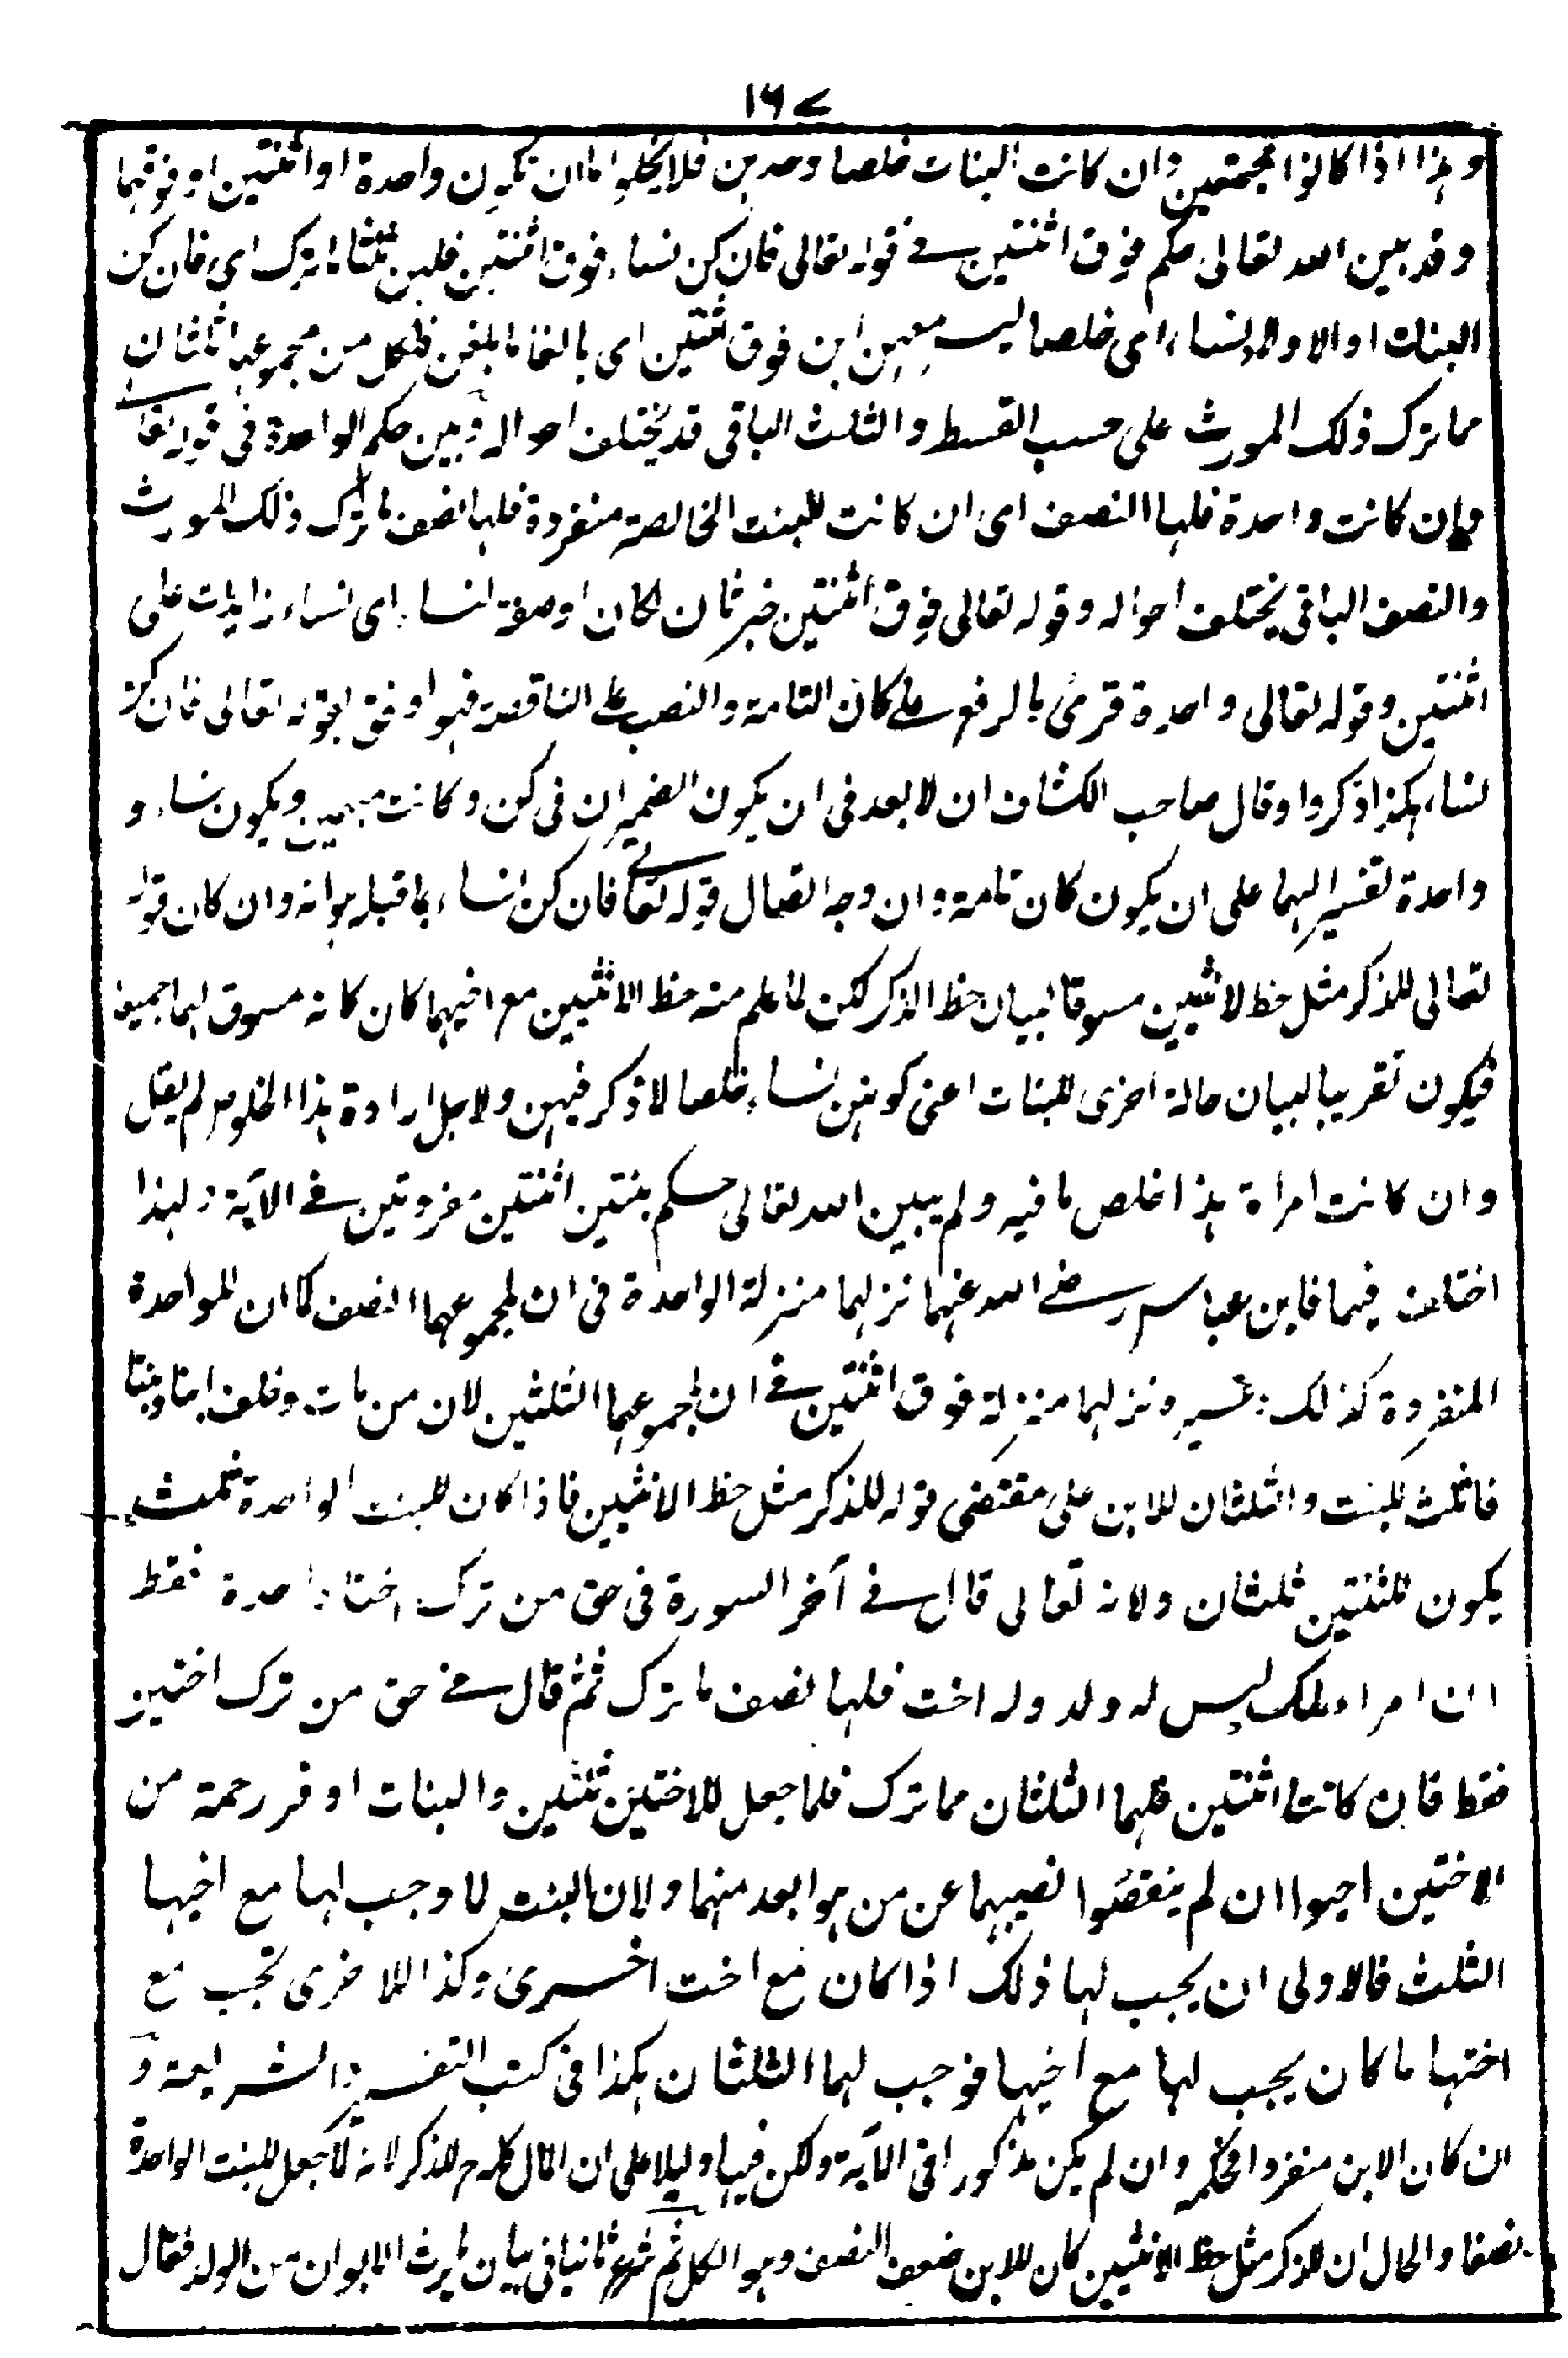 ١٦٧
وهذا اذا كانوا مجتمعين وان كانت البنات خلصا وحدهن فلا يخلو اما ان تكون واحدة او اثنتين او فوقهما
وقد بين الله تعالى حكم فوق اثنتين في قوله تعالى فان كن نساء فوق اثنتين فلهن ثلثا ما ترك اى فان كن
البنات او الاولاد نساء اى خلصا ليس معهن ابن فوق اثنتين اى بالغا ما بلغن فلكل من مجموعها ثلثان
مما ترك ذلك المورث على حسب القسط والثلث الباقى قد يختلف احواله وبين حكم الواحدة فى قوله تعالى
وان كانت واحدة فلها النصف اى ان كانت للبنت الخالصة منفردة فلها نصف ما ترك ذلك المورث
والنصف الباقى يختلف احواله وقوله تعالى فوق اثنتين خبر ثان لكان او صفة لنساء اى نساء زايدات على
اثنتين وقوله تعالى واحدة قرئ بالرفع على كان التامة والنصب على الناقصة فهو اوفق بقوله تعالى فان كن
نساء هكذا ذكروا وقال صاحب الكشاف ان لا بعد فى ان يكون الضميران فى كن وكانت مبهمين ويكون نساء و
واحدة تفسير لهما على ان يكون كان تامة وان وجه اتصال قوله تعالى فان كن نساء بما قبله هو انه وان كان قوله
تعالى للذكر مثل حظ الانثيين مسوقا لبيان حظ الذكر لكن لما علم منه حظ الانثيين مع اخيهما كان كانه مسوق لهما جميعا
فيكون تقريبا لبيان حالة اخرى للبنات اعنى كونهن نساء خلصا لا ذكر فيهن ولاجل ارادة هذا الخلوص لم يقل
وان كانت امراة هذا اخلص ما فيه ولم يبين الله تعالى حكم بنتين اثنتين مفردتين في الآية ولهذا
اختلف فيهما فابن عباس رضى الله عنهما نزلهما منزلة الواحدة فى ان لمجموعهما النصف كما ان للواحدة
المنفردة كذلك وغيره نزلهما منزلة فوق اثنتين في ان لمجموعهما الثلثين لان من مات وخلف ابنا وبنتا
فالثلث للبنت والثلثان للابن على مقتضى قوله للذكر مثل حظ الانثيين فاذا كان للبنت الواحدة ثلث
يكون للثنتين ثلثان ولانه تعالى قال في آخر السورة فى حق من ترك اختا واحدة فقط
ان امرء هلك ليس له ولد وله اخت فلها نصف ما ترك ثم قال في حق من ترك اختين
فقط فان كانتا اثنتين فلهما الثلثان مما ترك فلما جعل للاختين ثلثين والبنات اوفر رحمة من
الاختين احبوا ان لم ينقصوا نصيبهما عن من هو ابعد منهما ولان البنت لما وجب لها مع اخيها
الثلث فالاولى ان يجب لها ذلك اذا كان مع اخت اخرى وكذا للاخرى تجب مع
اختها ما كان يجب لها مع اخيها فوجب لهما الثلثان هكذا فى كتب التفسير والشريعة و
ان كان الابن منفردا فحكمه وان لم يكن مذكورا فى الآية ولكن فيها دليلا على ان المال كله للذكر لانه لما جعل للبنت الواحدة
نصفا والحال ان للذكر مثل حظ الانثيين كان للابن ضعف النصف وهو الكل ثم شرع ثانيا فى بيان ما يرث الابوان من الولد فقال